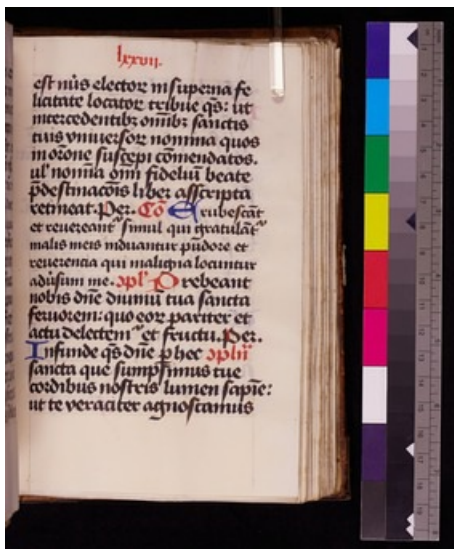 lxxvii.
est nr̄is elector in superna fe
licitate locator tribue qs: ut
intercedentibꝫ om̄ibꝫ sanctis
tuis vniuersoꝝ nomina quos
in or̄one suscepi com̄endatos.
ul' nomina om̄i fideliū beate
p̄destinac̄ois liber asscripta
retineat. Per. Cō Erubescāt
et reuereant᷑ simul qui gratulāt᷑
malis meis induantur pudore et
reuerentia qui maligna locuntur
adūsum me. ꝯpl' Prebeant
nobis dn̄e diuinū tua sancta
feruorem: quo eoꝝ pariter et
actu delectem᷑ et fructu. Per.
Infunde qs dn̄e p hec ꝯplīɩ
sancta que sumpsimus tue
cordibus nostris lumen sapīe:
ut te veraciter agnoscamus